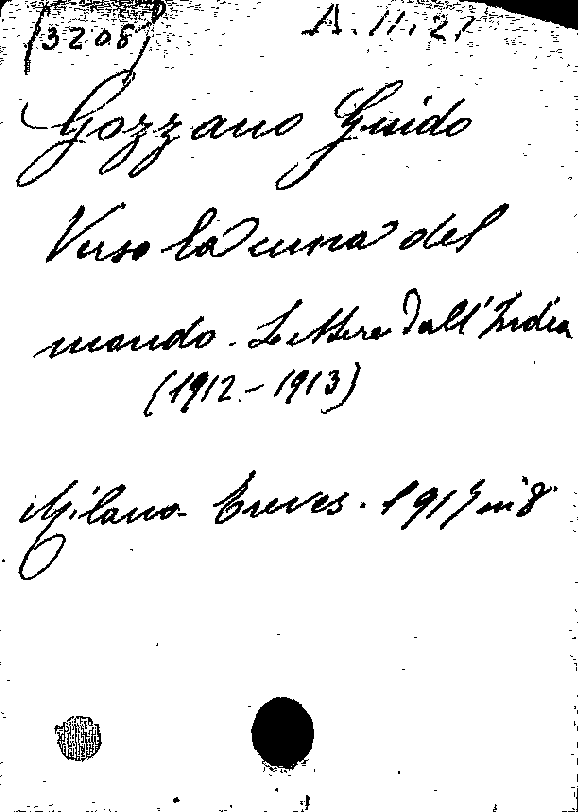 [3208] A. 11. 21
Gozzano Guido
Verso la cuna del
mondo. Lettere dall'India
(1912-1913)
Milano. Treves. 1917 in 8°